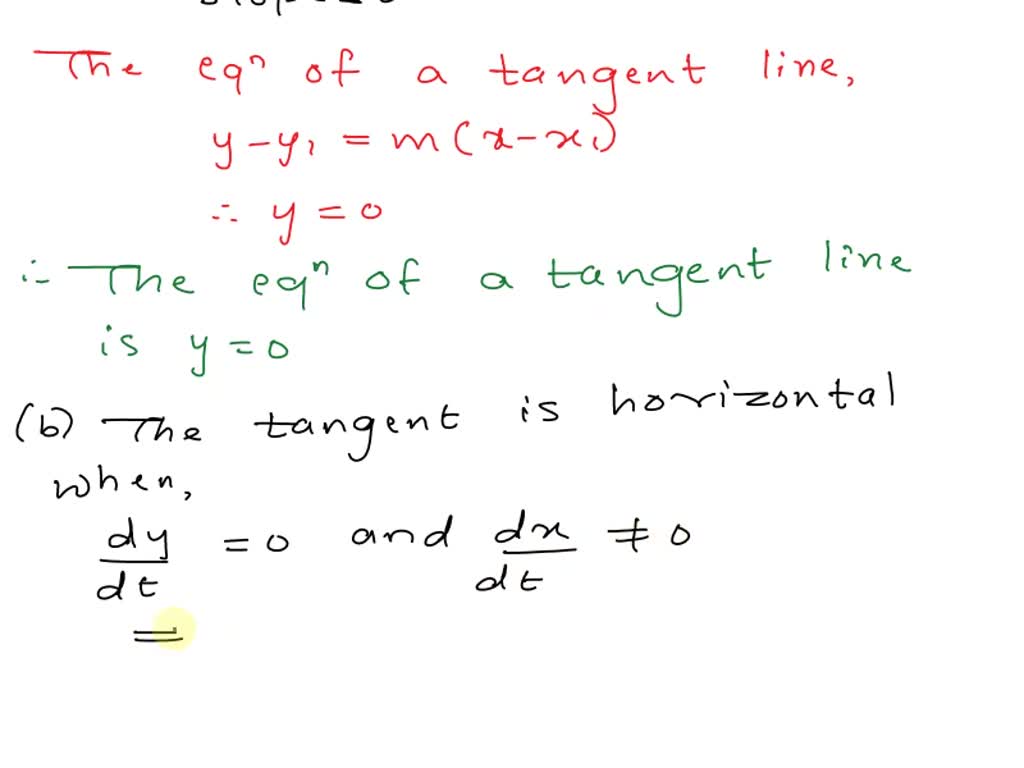 The eqⁿ of a tangent line,
y - y₁ = m(x - x₁)
∴ y = 0
∴ The eqⁿ of a tangent line
is y = 0
(b) The tangent is horizontal
when,
dy/dt = 0 and dx/dt ≠ 0